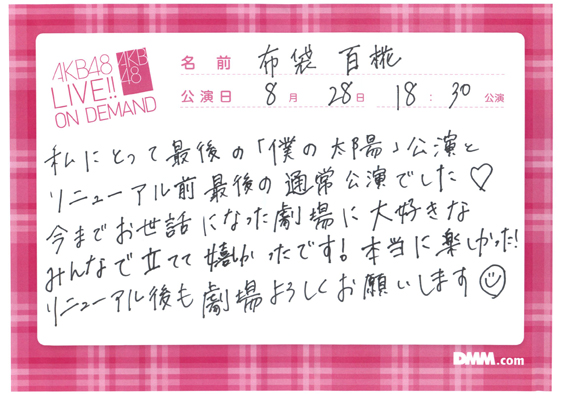 AKB48
LIVE!!
ON DEMAND
AKB
48
名前 布袋 百椛
公演日 8月 28日 18:30 公演
私にとって最後の「僕の太陽」公演と
リニューアル前最後の通常公演でした♡
今までお世話になった劇場に大好きな
みんなで立てて嬉しかったです!本当に楽しかった!
リニューアル後も劇場よろしくお願いします☺
DMM.com